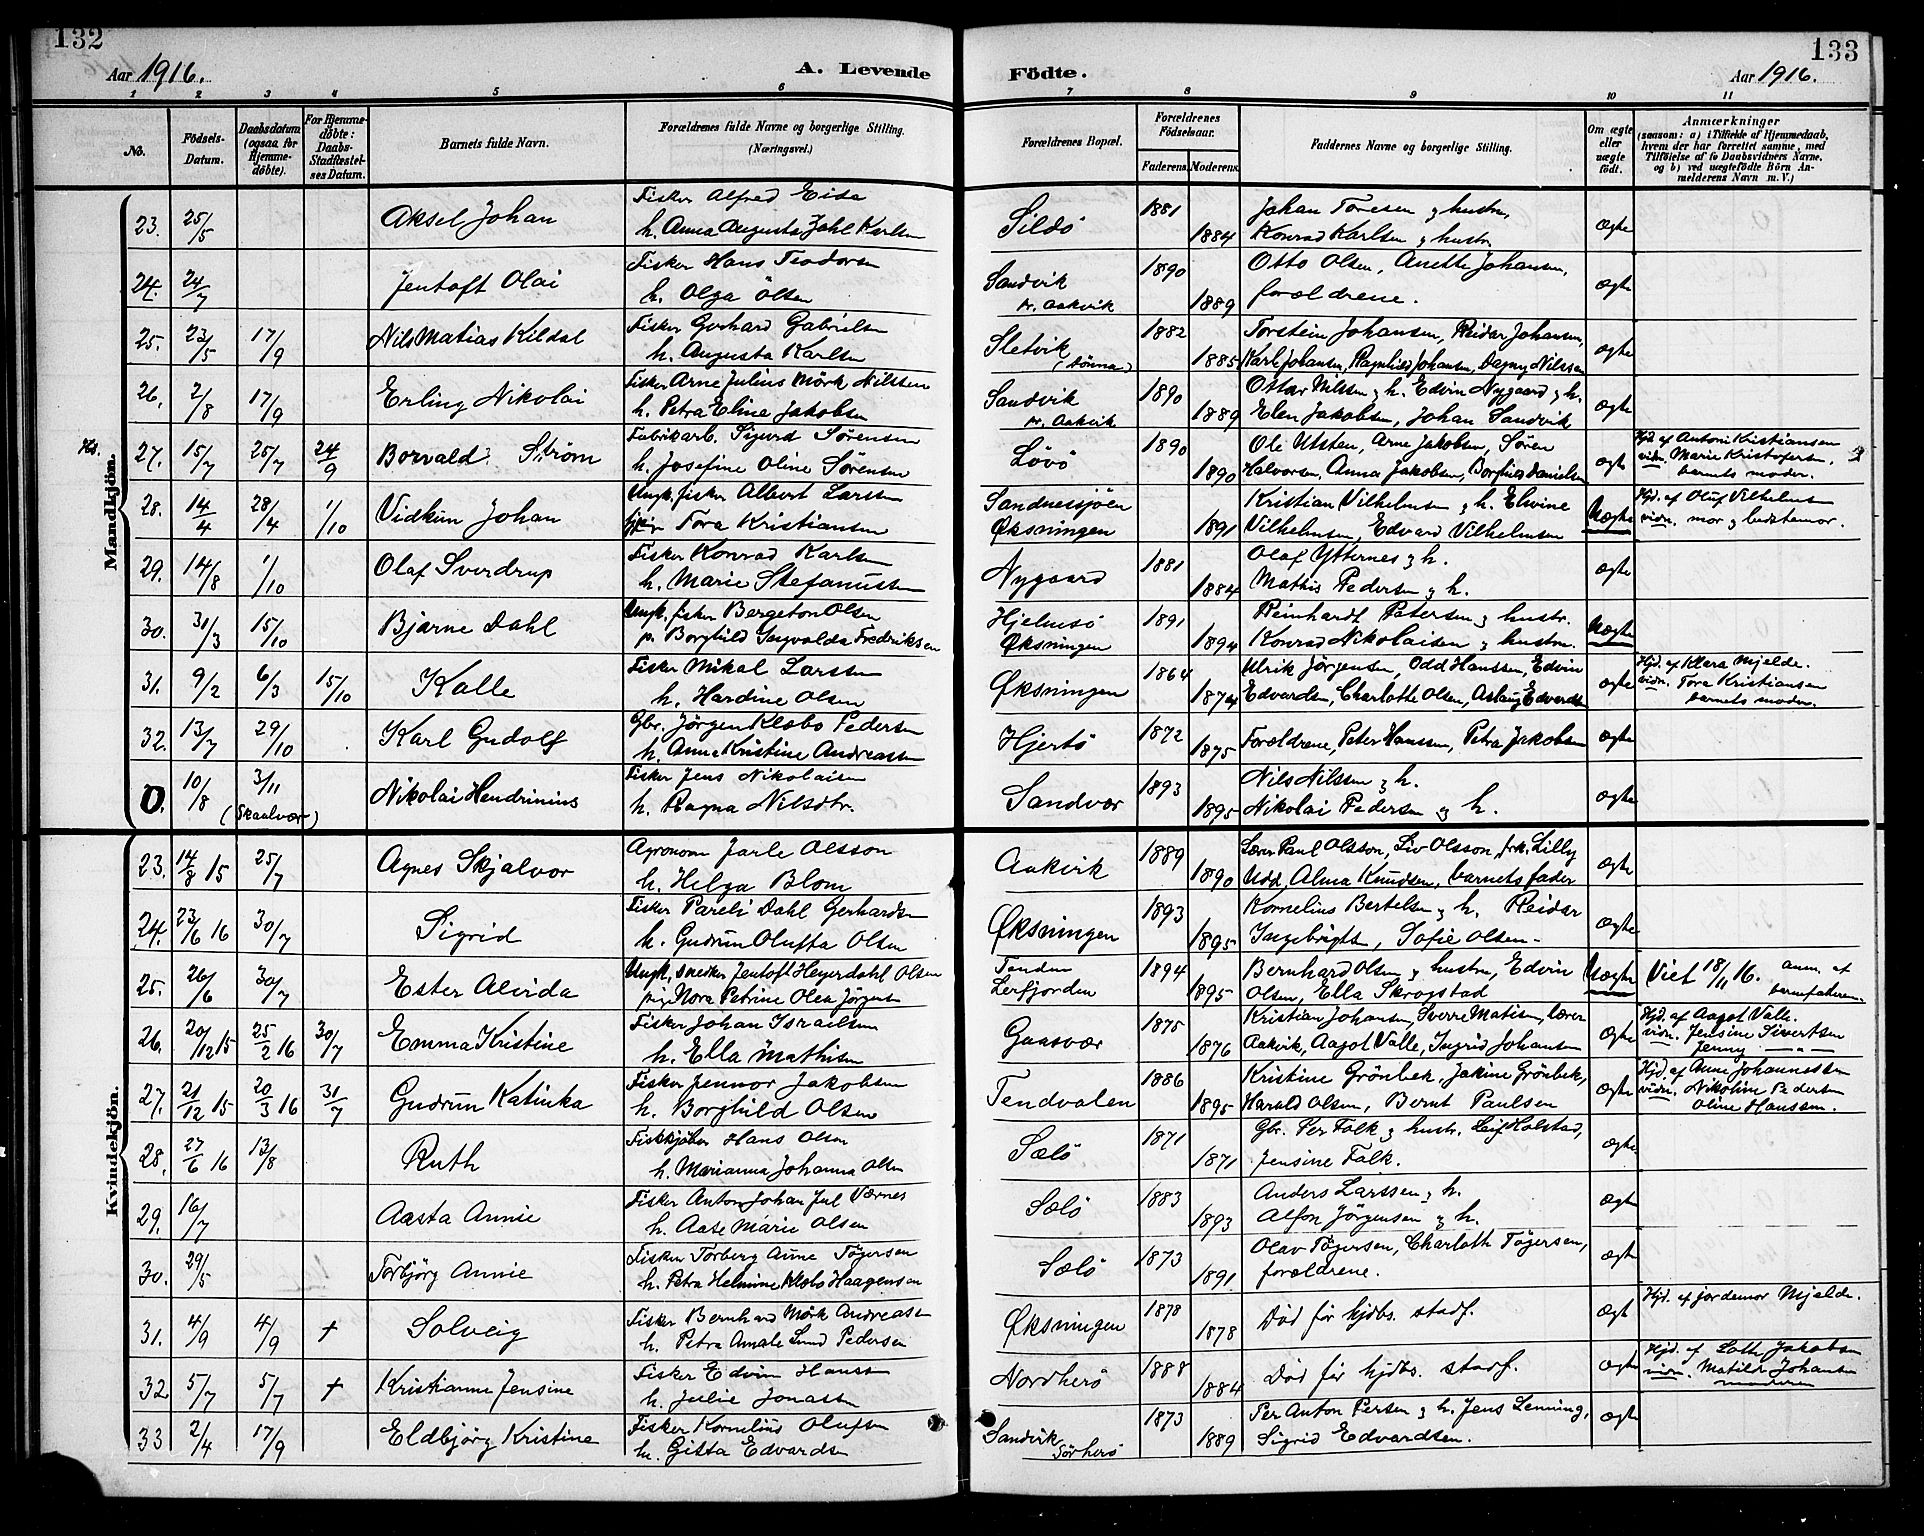 132
133
Aar 1916.
A. Levende
Födte.
Aar 1916.
1 2 3 4 5 6 7 8 9 10 11
No.
Födsels-Datum.
Daabsdatum (ogsaa for Hjemmedöbte).
For Hjemmedöbte: Daabs-Stadfæstelses Datum.
Barnets fulde Navn.
Forældrenes fulde Navne og borgerlige Stilling.
(Næringsvei.)
Forældrenes Bopæl.
Forældrenes Födselsaar.
Faderens. Moderens.
Faddernes Navne og borgerlige Stilling.
Om ægte eller uægte födt.
Anmærkninger
(saasom: a) i Tilfælde af Hjemmedaab, hvem der har forrettet samme, med Tilföielse af to Daabsvidners Navne, og b) ved uægtefödte Börn Anmelderens Navn m. V.)
Mandkjön.
23. 25/5 Aksel Johan Fisker Alfred Eida Sildö 1881 Johan Toresen & hustr, Ægte
h. Anna Augusta Dahl Karlsen 1884 Konrad Karlsen & hustr
24. 24/7 Jentoft Olai Fisker Hans Teodorsen Sandvik 1890 Otto Olsen, Anette Johansen, ægte
h. Olga Olsen pr. Aakvik 1889 forældrene.
25. 23/5 17/9 Nils Matias Kildal Fisker Gerhard Gabrielsen Sletvik 1882 Torstein Johansen, Reidar Johansen, ægte
h. Augusta Karlsen (Dönna) 1885 Karl Johansen, Ragnhild Johansen, Dagny Nilssen
26. 2/8 17/9 Erling Nikolai Fisker Arne Julius Mörk Nilssen Sandvik 1890 Ottar Nilssen & h. Edvin Nygaard & h. ægte
h. Petra Eline Jakobsen pr. Aakvik 1889 Elen Jakobsen, Johan Sandvik
27. 15/7 25/7 24/9 Borvald Strøm Fabrikarb. Sigurd Sörensen Lövö 1890 Ole Utsten, Arne Jakobsen, Sören ægte Hjd af Antoni Kristiansen
h. Josefine Oline Sörensen 1890 Halvorsen, Anna Jakobsen, Borghild Danielsen vidn. Marie Kristofersen,
barnets moder.
28. 14/4 28/4 1/10 Vidkun Johan Ungk. fisker Albert Larssen Sandnessjöen Kristian Vilhelmsen & h. Elvine Uægte Hjd. af Oluf Vilhelmsen
Tora Kristiansen Øksningen 1891 Vilhelmsen, Edvard Vilhelmsen vidn. mor & bedstemor.
29. 14/8 1/10 Olaf Sverdrup Fisker Konrad Karlsen Nygaard 1881 Olaf Ytternes & h. ægte
h. Marie Stefanussen 1884 Mathis Pedersen & h.
30. 31/3 15/10 Bjarne Dahl Ungk. fisker Bergeton Olsen Hjelmsö 1891 Reinhardt Petersen & hustr. Uægte
p. Borghild Ingvalda Fredriksen Øksningen 1894 Konrad Nikolaisen & hustru.
31. 9/2 6/3 15/10 Kalle Fisker Mikal Larssen Øksningen 1864 Ulrik Jörgensen, Odd Hanssen, Edvin ægte Hjd. af Klara Mjelde.
h. Hardine Olsen 1874 Edvardsen, Charlotte Olsen, Aslaug Edvardsen vidn. Tora Kristiansen
barnets moder.
32. 13/7 29/10 Karl Gudolf Gbr. Jörgen Klæbo Pedersen Hjertö 1872 Forældrene, Peter Hanssen, Petra Jakobsen ægte
h. Anne Kristine Andreassen 1875
0. 10/8 3/11 (Skaalvær) Nikolai Hendrinius Fisker Jens Nikolaisen Sandvær 1893 Nils Nilssen & h. ægte
h. Ragna Nilsdtr. 1895 Nikolai Pedersen & h.
Kvindekjön.
23. 14/8 15 25/7 Agnes Skjalvor Agronom Jarle Olsson Aakvik 1889 Lærer Paul Olsson, Liv Olsson, frk. Lilly ægte
h. Helga Blom 1890 Udd, Alma Knudsen, barnets fader
24. 23/6 16 30/7 Sigrid Fisker Pareli Dahl Gerhardsen Øksningen 1893 Kornelius Bertelsen & h. Reidar ægte
h. Gudrun Olufta Olsen 1895 Ingebrigts, Sofie Olsen-
25. 26/6 30/7 Ester Alvida Ungk, snedker Jentoft Heyerdahl Olsen 1894 Bernhard Olsen & hustru, Edvin Uægte Viet 18/11 16. anm. af
Nora Petrine Olea Jörgens Leirfjorden 1895 Olsen, Ella Skrogstad barnefaderen
26. 20/12 15 25/2 16 30/7 Emma Kristine Fisker Johan Israelsen Gaasvær 1875 Kristian Johansen, Sverre Matisen, lærer ægte Hjd. af Aagot Valle.
h. Ella Mathisen 1876 Aakvik, Aagot Valle, Ingrid Johansen vidn. Jensine Sivertsen
Jenny —"—
27. 21/12 15 20/3 16 31/7 Gudrun Katinka Fisker Jennor Jakobsen Tendvalen 1886 Kristine Grönbek, Jakine Grönbek, ægte Hjd. af Anne Johannessen
h. Borghild Olsen 1895 Harald Olsen, Bernt Paulsen vidn. Nikoline Pedersen
Oline Hanssen.
28. 27/6 16 13/8 Ruth Fiskekjöber Hans Olsen Sælö 1871 Gbr. Per Falk & hustr. Leif Holstad, ægte
h. Marianna Johanna Olsen 1871 Jensine Falk.
29. 16/7 Aasta Annie Fisker Anton Johan Jul Værnes Sælö 1883 Anders Larssen & h. ægte
h. Aase Marie Olsen 1893 Alfon Jörgensen & h.
30. 29/5 Torbjörg Annie Fisker Torberg Aune Tögersen Sælö 1873 Olav Tögersen, Charloth Tögersen, ægte
h. Petra Helmine Klæbo Haagensen 1891 forældrene.
31. 4/9 4/9 † Solveig Fisker Bernhard Mörk Andreassen Øksningen 1878 Död för hjdbs. stadf. ægte Hjd. af jordemor Mjelde.
h. Petra Amale Lund Pedersen 1878
32 5/7 5/7 † Kristianne Jensine Fisker Edvin Hanssen Nordherö 1888 Död för hjdbs. stadf. ægte Hjd. af Lotte Jakobsen
h. Julie Jonassen 1884 vidn. Matilde Johansen
moderen
33 2/4 17/9 Eldbjörg Kristine Fisker Kornelius Olufsen Sandvik 1873 Per Anton Persen & h. Jens Lenning, ægte
h. Gitta Edvardsen Sörherö 1889 Sigrid Edvardsen.